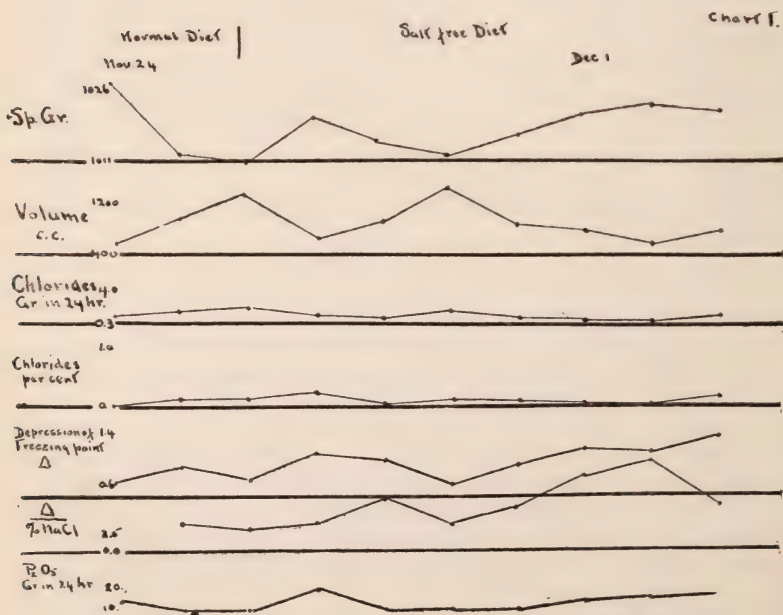 Normal Diet | Salt free Diet Chart I.
Nov. 24 Dec 1
1026
Sp. Gr.
1011
1200
Volume
c.c.
400
Chlorides 4.0
Gr in 24 hr.
0.3
1.0
Chlorides
per cent
0.
Depression of 1.4
Freezing point
Δ
0.6
Δ
% NaCl 2.5
0.0
P2O5
Gr in 24 hr 20.
10.